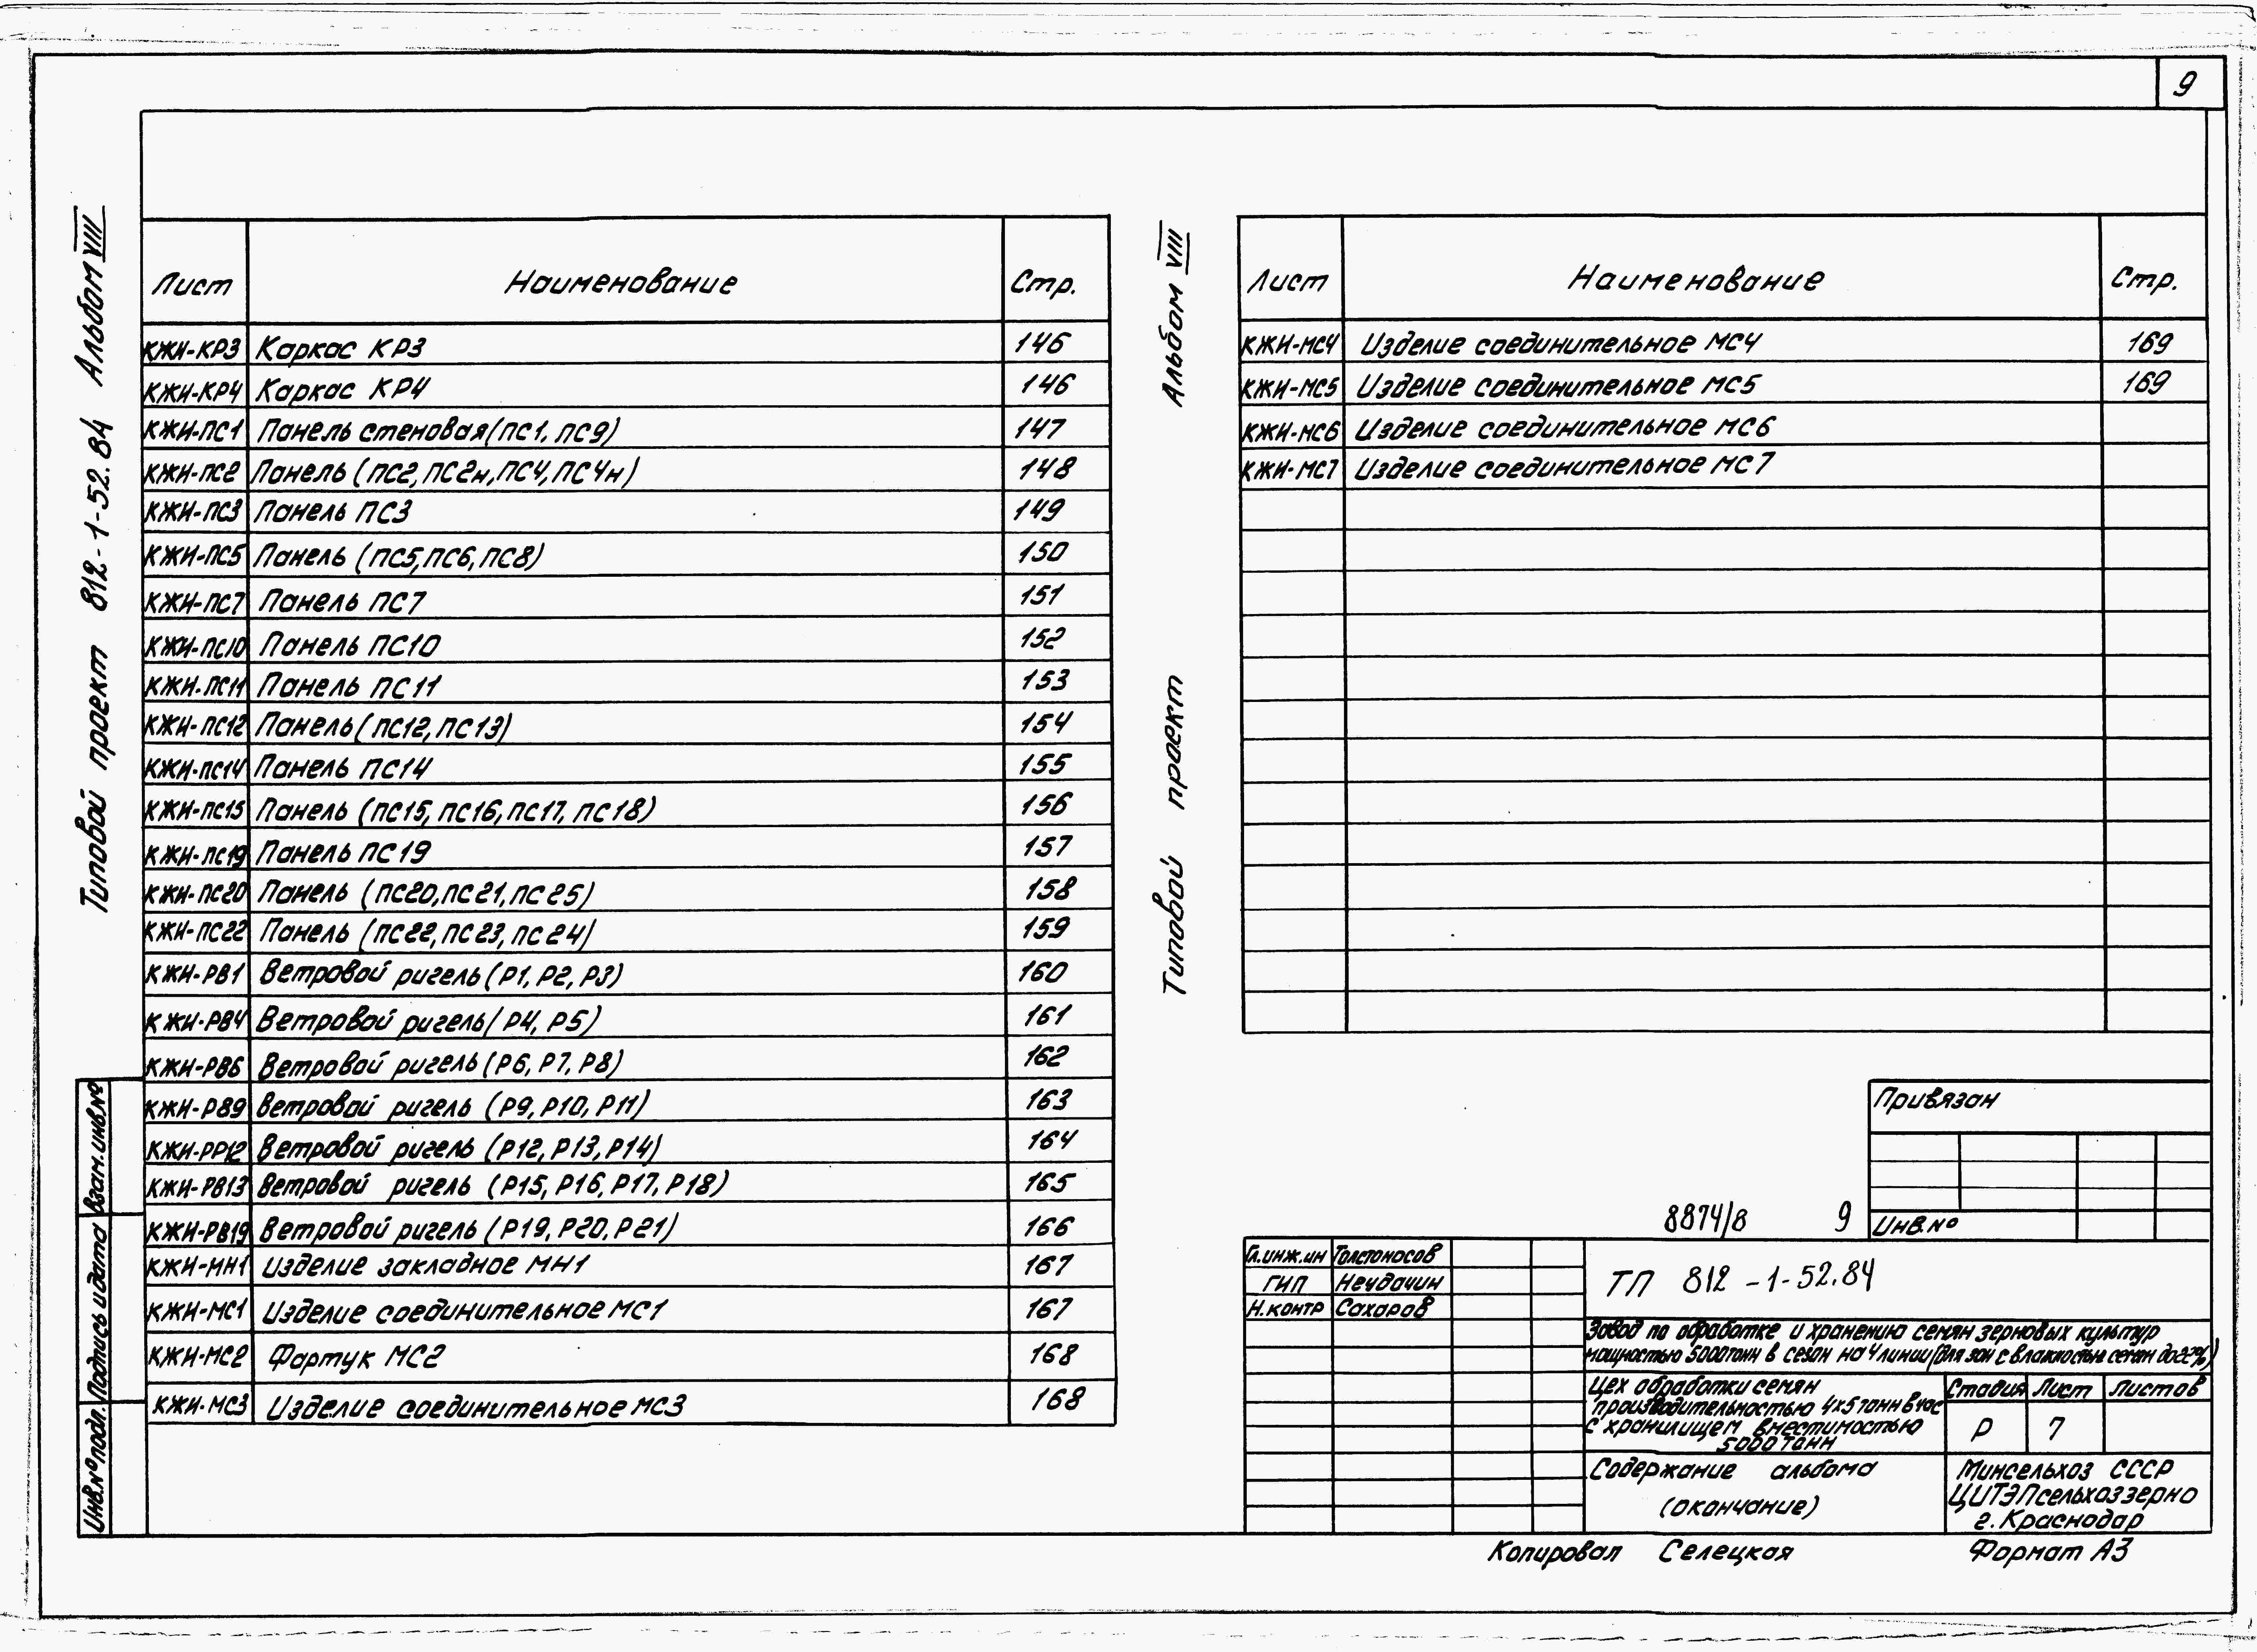 9
Типовой проект 812-1-52.84 Альбом VIII
Лист Наименование Стр.
КЖИ-КР3 Каркас КР3 146
КЖИ-КР4 Каркас КР4 146
КЖИ-ПС1 Панель стеновая(ПС1, ПС9) 147
КЖИ-ПС2 Панель (ПС2, ПС2н, ПС4, ПС4н) 148
КЖИ-ПС3 Панель ПС3 149
КЖИ-ПС5 Панель (ПС5, ПС6, ПС8) 150
КЖИ-ПС7 Панель ПС7 151
КЖИ-ПС10 Панель ПС10 152
КЖИ-ПС11 Панель ПС11 153
КЖИ-ПС12 Панель (ПС12, ПС13) 154
КЖИ-ПС14 Панель ПС14 155
КЖИ-ПС15 Панель (ПС15, ПС16, ПС17, ПС18) 156
КЖИ-ПС19 Панель ПС19 157
КЖИ-ПС20 Панель (ПС20, ПС21, ПС25) 158
КЖИ-ПС22 Панель (ПС22, ПС23, ПС24) 159
КЖИ-РВ1 Ветровой ригель (Р1, Р2, Р3) 160
КЖИ-РВ4 Ветровой ригель (Р4, Р5) 161
КЖИ-РВ6 Ветровой ригель (Р6, Р7, Р8) 162
КЖИ-РВ9 Ветровой ригель (Р9, Р10, Р11) 163
КЖИ-РР12 Ветровой ригель (Р12, Р13, Р14) 164
КЖИ-РВ13 Ветровой ригель (Р15, Р16, Р17, Р18) 165
КЖИ-РВ19 Ветровой ригель (Р19, Р20, Р21) 166
КЖИ-МН1 Изделие закладное МН1 167
КЖИ-МС1 Изделие соединительное МС1 167
КЖИ-МС2 Фартук МС2 168
КЖИ-МС3 Изделие соединительное МС3 168
Взам.инв.№
Подпись и дата
Инв.№ подл.
Типовой проект Альбом VIII
Лист Наименование Стр.
КЖИ-МС4 Изделие соединительное МС4 169
КЖИ-МС5 Изделие соединительное МС5 169
КЖИ-МС6 Изделие соединительное МС6
КЖИ-МС7 Изделие соединительное МС7
Привязан
Инв.№
8874/8 9
Гл.инж.ин Толстоносов
ГИП Неудачин
Н.контр Сахаров
ТП 812-1-52.84
Завод по обработке и хранению семян зерновых культур
мощностью 5000тонн в сезон на 4 линии (для зон с влажностью семян до 22%)
Цех обработки семян
производительностью 4х5 тонн в час
с хранилищем вместимостью
5000 тонн
Стадия Лист Листов
Р 7
Содержание альбома
(окончание)
Минсельхоз СССР
ЦИТЭПсельхоззерно
г. Краснодар
Копировал Селецкая Формат А3